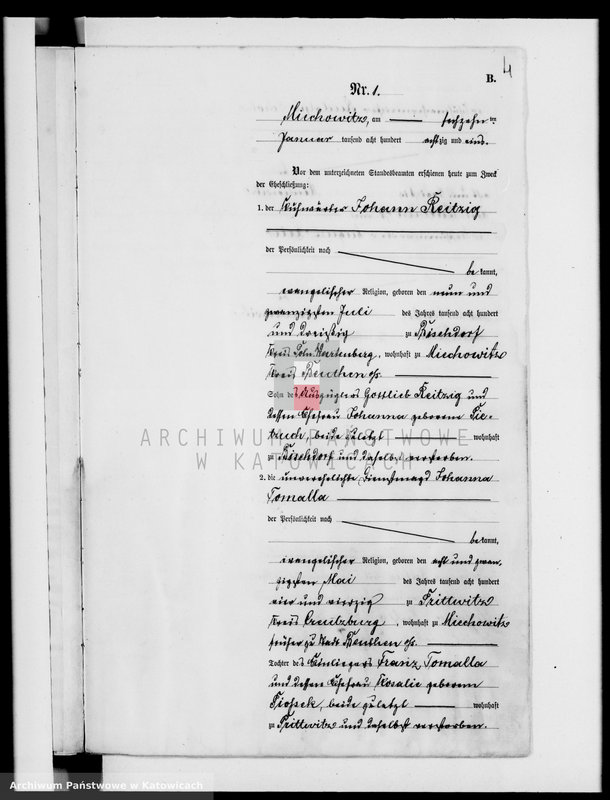 4
B.
Nr. 1.
Miechowitz, am sechzehn ten
Januar tausend acht hundert achtzig und eins.
Vor dem unterzeichneten Standesbeamten erschienen heute zum Zweck
der Eheschließung:
1. der Kuhwärter Johann Reitzig
der Persönlichkeit nach
be kannt,
evangelischer Religion, geboren den neun und
zwanzigsten Juli des Jahres tausend acht hundert
und dreißig zu Bischdorf
Kreis Poln. Wartenberg, wohnhaft zu Miechowitz
Kreis Beuthen o/s.
Sohn des Auszüglers Gottlieb Reitzig und
dessen Ehefrau Johanna geborene
beide zuletzt wohnhaft
zu Bischdorf und daselbst verstorben.
2. die unverehelichte Dienstmagd Johanna
Tomalla
der Persönlichkeit nach
be kannt,
evangelischer Religion, geboren den acht und zwan-
zigsten Mai des Jahres tausend acht hundert
vier und vierzig zu Prittwitz
Kreis Creutzburg, wohnhaft zu Miechowitz
früher zu Stadt Beuthen o/s.
Tochter des Einliegers Franz Tomalla
und dessen Ehefrau Rosalie geborene
beide zuletzt wohnhaft
zu Prittwitz und daselbst verstorben.
ARCHIWUM PAŃSTWOWE
W KATOWICACH
Archiwum Państwowe w Katowicach